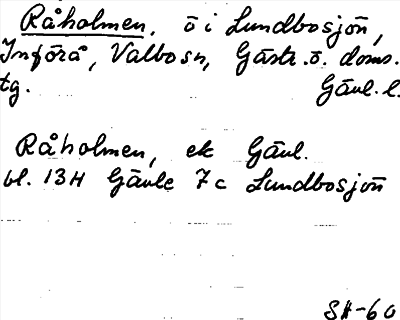 Råholmen, ö i Lundbosjön,
Införå, Valbo sn, Gästr. ö. doms.
tg. Gävl. l.
Råholmen, ek Gävl.
bl. 13H Gävle 7c Lundbosjön
SH-60